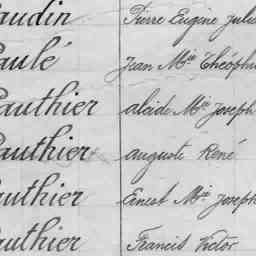 audin Pierre Eugène Jule
aulé Jean Mie Théophi
authier alcide Mie Joseph
Gauthier auguste René
authier Ernest Mie Joseph
authier Francis Victor